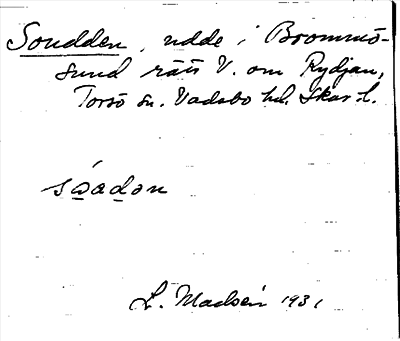 Soudden, udde i Brommö-
sund rätt V. om Rydjan,
Torsö sn. Vadsbo hd. Skar. l.
L. Madsén 1931